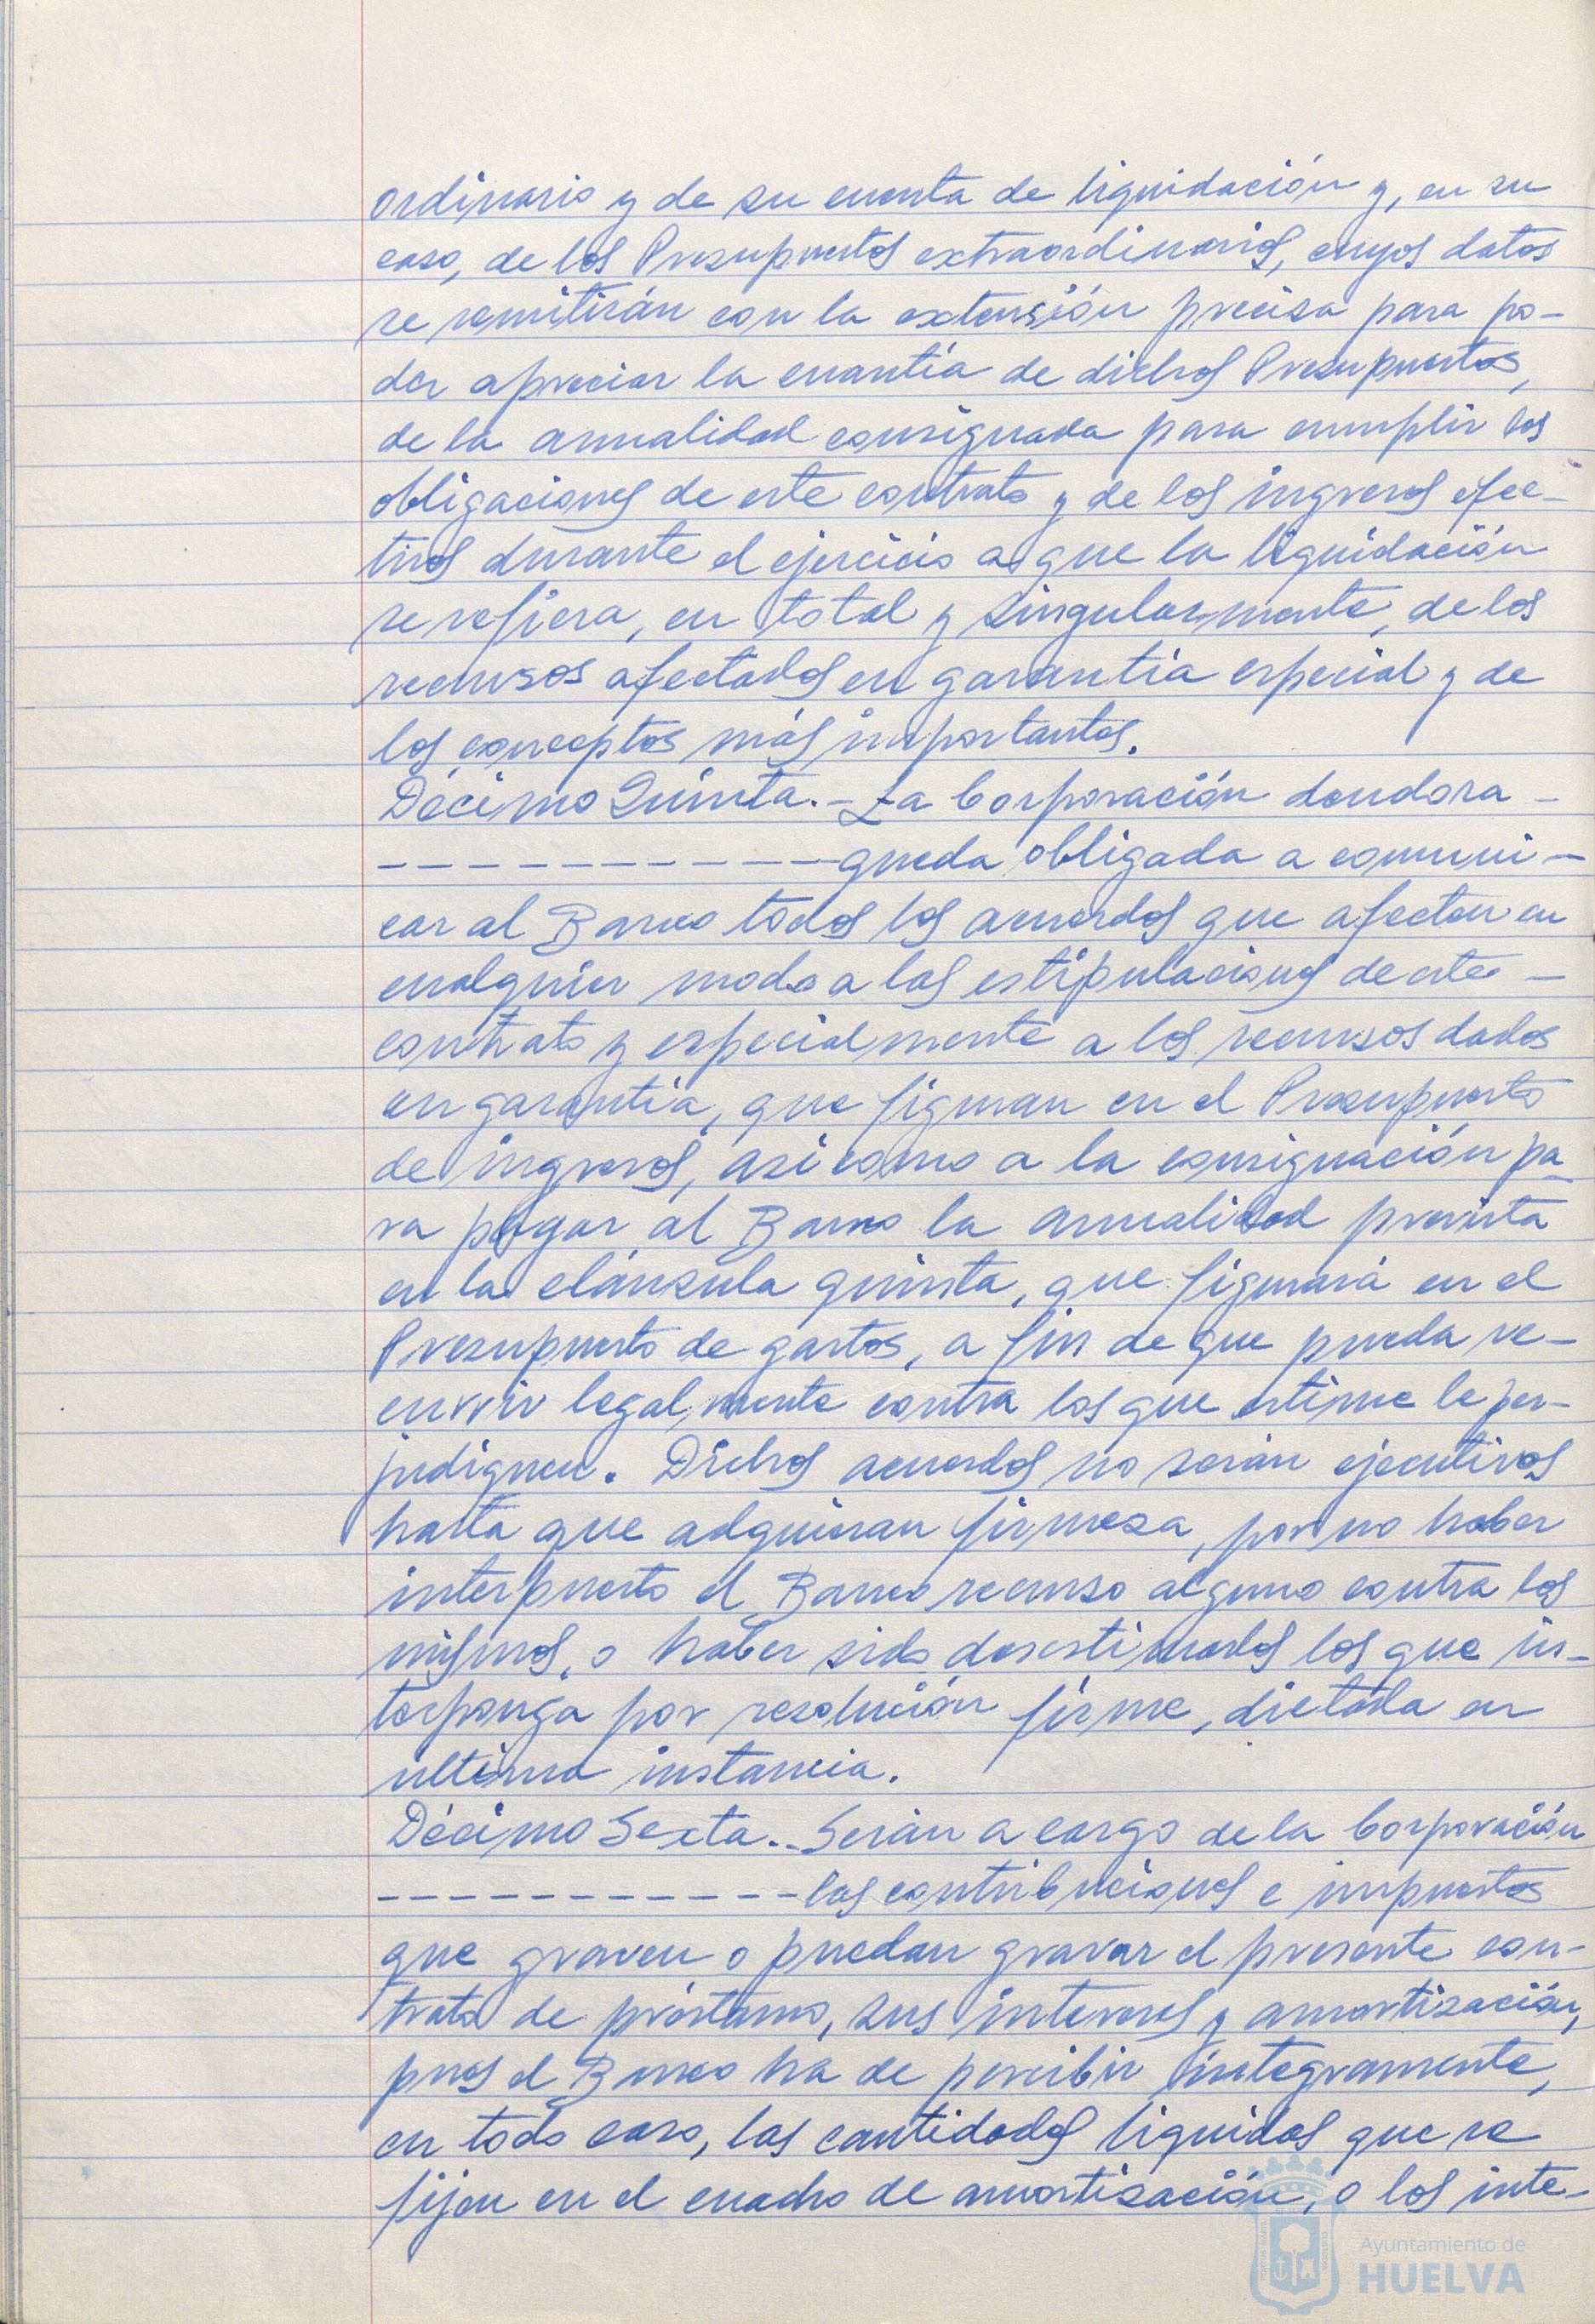 ordinario y de su cuenta de liquidación y, en su
caso, de los Presupuestos extraordinarios, cuyos datos
se remitirán con la extensión precisa para po-
der apreciar la cuantía de dichos Presupuestos,
de la anualidad consignada para cumplir las
obligaciones de este contrato y de los ingresos efec-
tivos durante el ejercicio a que la liquidación
se refiera, en total y singularmente, de los
recursos afectados en garantía especial y de
los conceptos más importantes.
Décimo Quinta.- La Corporación deudora -
- - - - - - - - - - - queda obligada a comuni-
car al Banco todos los acuerdos que afecten en
cualquier modo a las estipulaciones de este -
contrato y especialmente a los recursos dados
en garantía, que figuran en el Presupuesto
de ingresos, así como a la consignación pa-
ra pagar al Banco la anualidad prevista
en la cláusula quinta, que figurará en el
Presupuesto de gastos, a fin de que pueda re-
currir legalmente contra los que estime le per-
judiquen. Dichos acuerdos no serán ejecutivos
hasta que adquieran firmeza, por no haber
interpuesto el Banco recurso alguno contra los
mismos, o haber sido desestimados los que in-
terponga por resolución firme, dictada en
última instancia.
Décimo Sexta.- Serán a cargo de la Corporación
- - - - - - - - - - - las contribuciones e impuestos
que graven o puedan gravar el presente con-
trato de préstamo, sus intereses y amortización,
pues el Banco ha de percibir íntegramente,
en todo caso, las cantidades líquidas que se
fijen en el cuadro de amortización, o los inte-
Ayuntamiento de
HUELVA